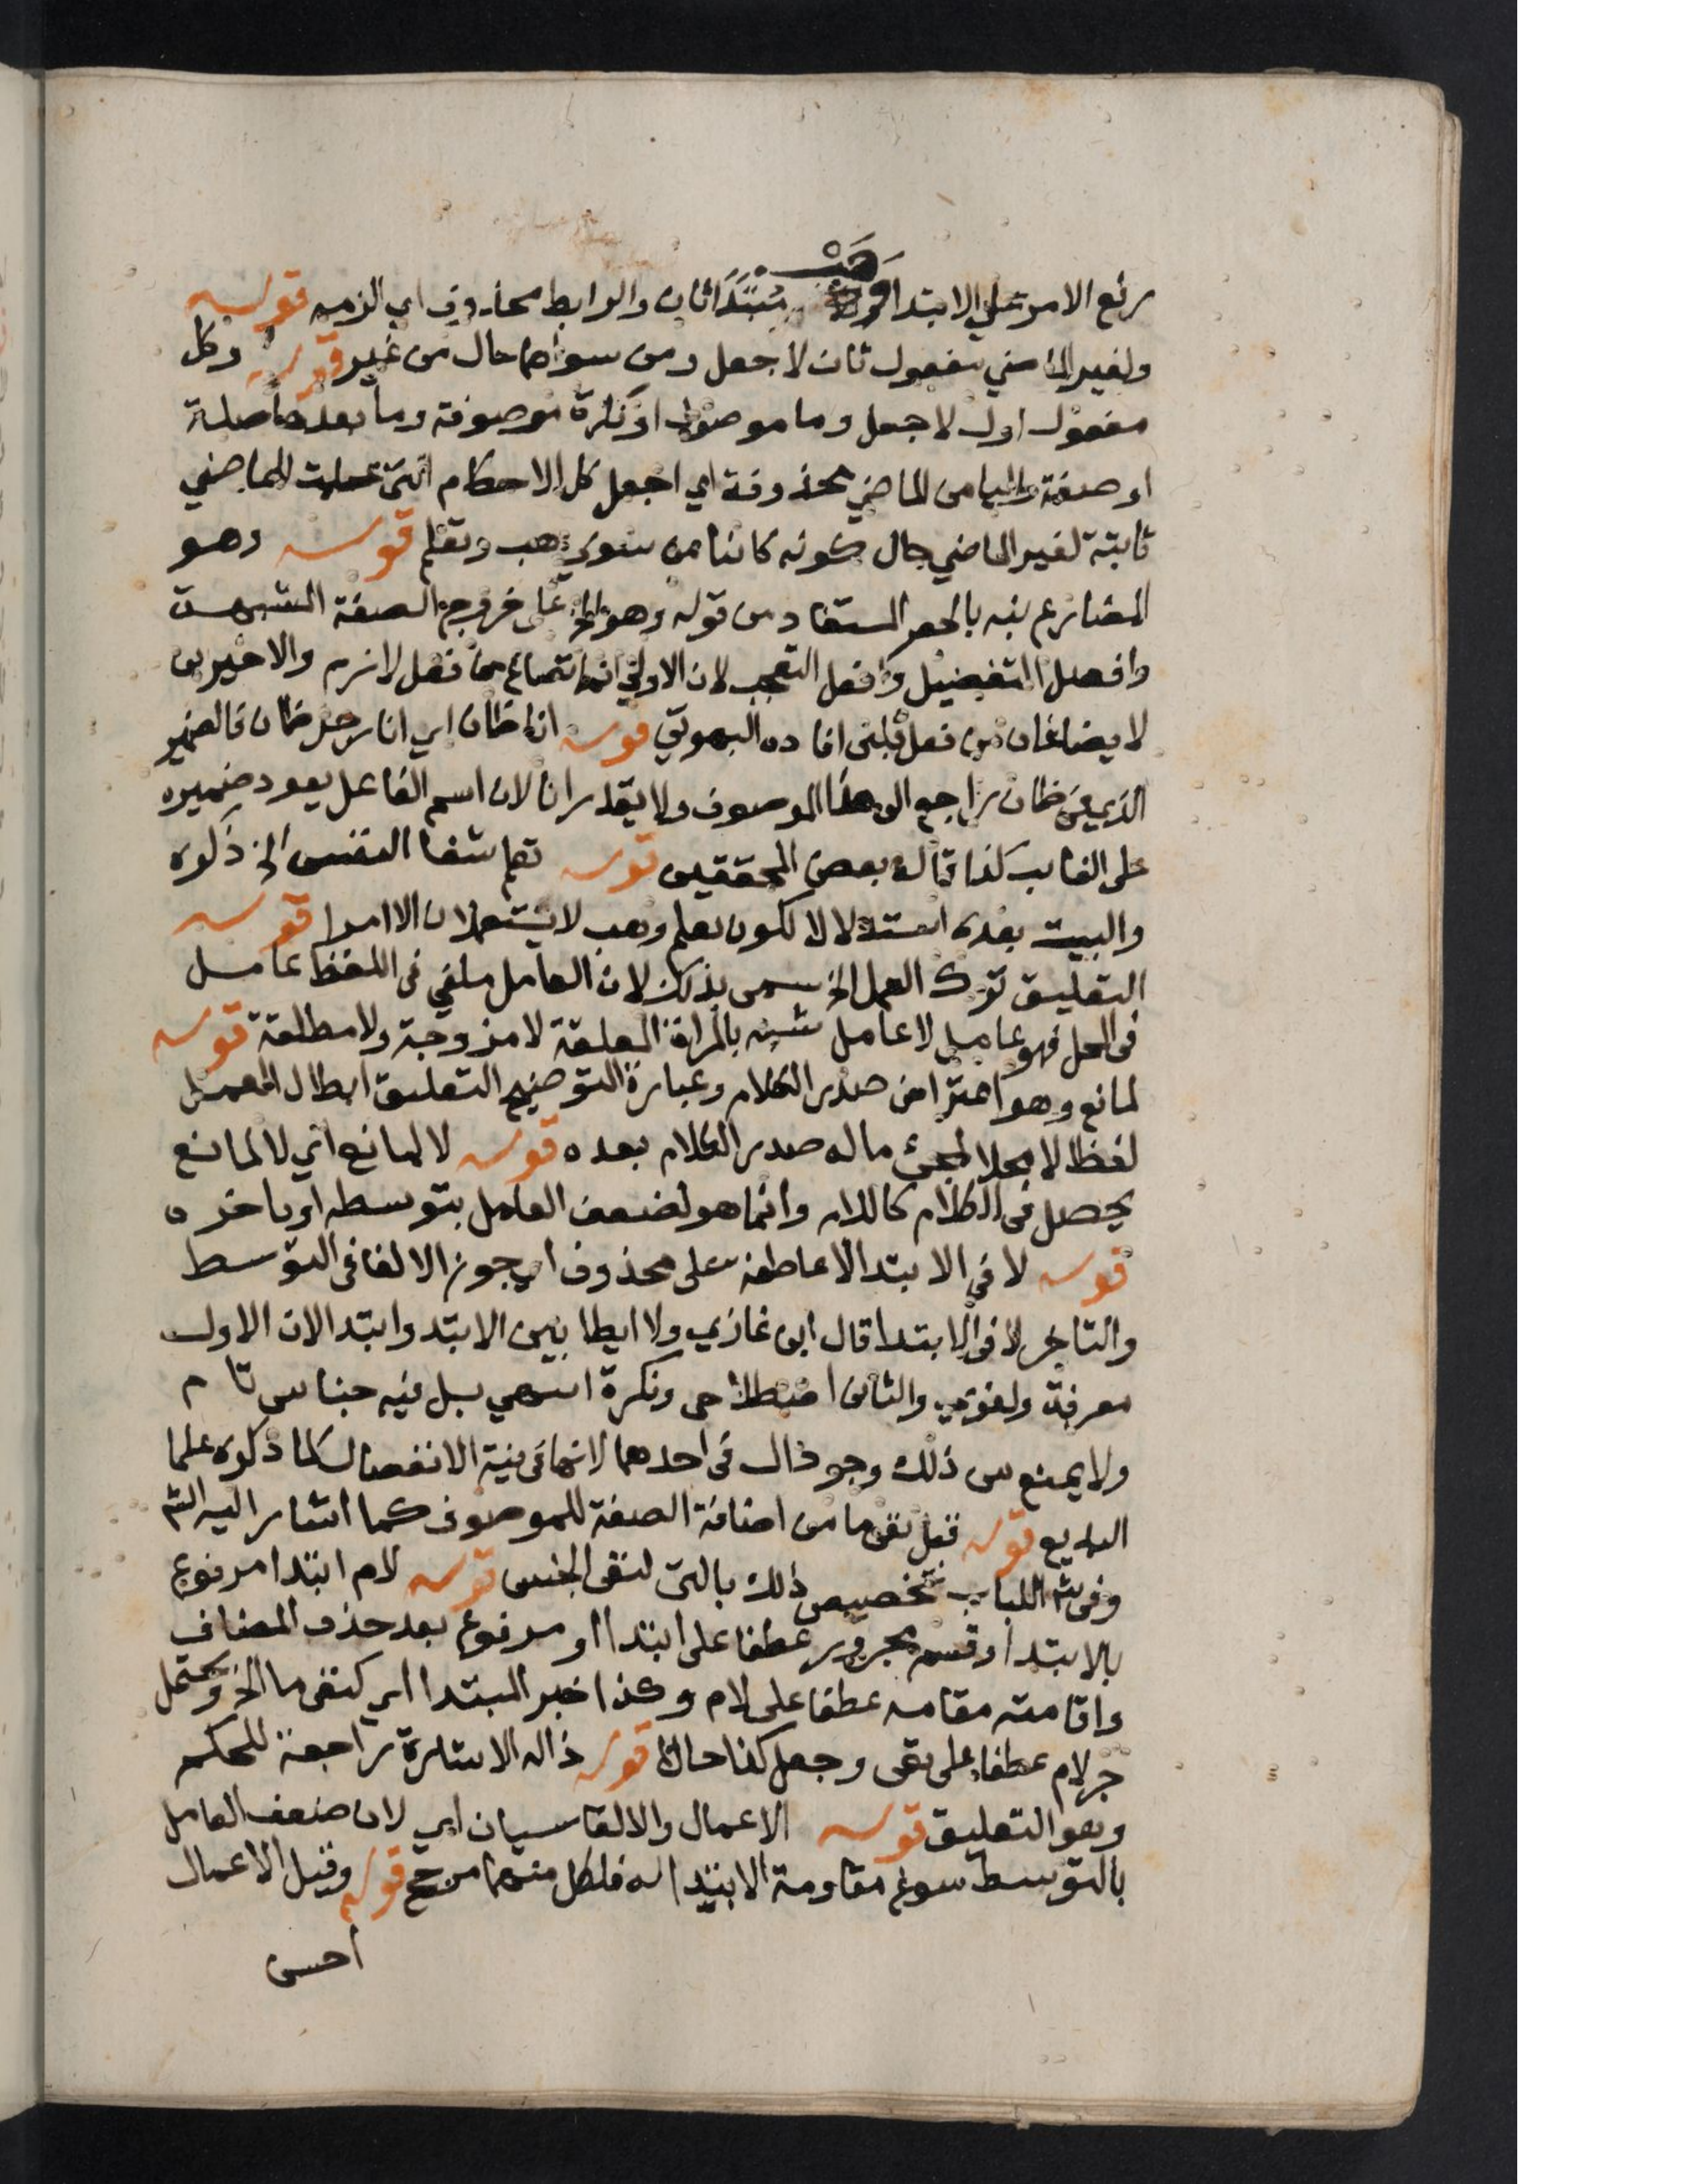 هب
رفع الامر على الابتدا مبتدا ثان والرابط محذوف اي الزمه قوله
ولغير الماضي مفعول ثان لاجعل ومن سواهما حال من غير قوله وكل
مفعول اول لاجعل وما موصول او نكرة موصوفة وما بعدها صلة
او صفة واليا من الماضي محذوفة اي اجعل كل الاحكام التي للماضي
ثابتة لغير الماضي حال كونه كائنا من سوي هب وتعلم قوله وهو
المضارع نبه بالحصر المستفاد من قوله وهو الخ على خروج الصفة المشبهة
وافعل التفضيل وافعل التعجب لان الاولي انما تصاغ من فعل لازم والاخيرين
لا يصاغان من فعل قلبى افاده البهوتي قوله انا ظان اي انا رجل ظان فالضمير
الذي في ظان راجع الى هذا الموصوف ولا يقدر انا لان اسم الفاعل يعود ضميره
على الغايب كذا قاله بعض المحققين قوله تعلم شفا النفس الخ ذكره
والبيت بعده استدلالا لكون تعلم وهب لا يستعملان الا امرا قوله
التعليق ترك العمل الخ سمى بذلك لان العامل ملغي فى اللفظ عامل
فى المحل فهو عامل لا عامل شبه بالمراة المعلقة لا مزوجة ولا مطلقة قوله
لمانع وهو اعتراض صدر الكلام وعبارة التوضيح التعليق ابطال العمل
لفظا لا محلا لمجئ ماله صدر الكلام بعده قوله لا لمانع اي لا لمانع
يحصل فى الكلام كاللام وانما هو لضعف العامل بتوسطه او تاخره
قوله لا في الابتدا لا عاطفة على محذوف اي جوز الالغا فى التوسط
والتاخر لا فى الابتدا قال ابن غازي ولا ايطا بين الابتد وابتدا لان الاول
معرفة ولغوي والثانى اصطلاحى ونكرة اسهي بل فيه جناس تام
ولا يمنع من ذلك وجود ال فى احدهما لانها فى نية الانفصال كما ذكره علما
البديع قوله قبل نفى ما من اضافة الصفة للموصوف كما اشار اليه الشم
وفى شم اللباب تخصيص ذلك بالتى لنفى الجنس قوله لام ابتدا مرفوع
بالابتدا وقسم مجرور عطفا على ابتدا او مرفوع بعد حذف المضاف
واقامته مقامه عطفا على لام وكذا خبر المبتدا اي كنفى ما الخ ويحتمل
جر لام عطفا على نفى وجعل كذا حالا قوله ذا له الاشارة راجعة للحكم
وهو التعليق قوله الاعمال والالغا سيان اي لان ضعف العامل
بالتوسط سوغ مقاومة الابتدا له فلكل منهما مرجح قوله وقيل الاعمال
احسن